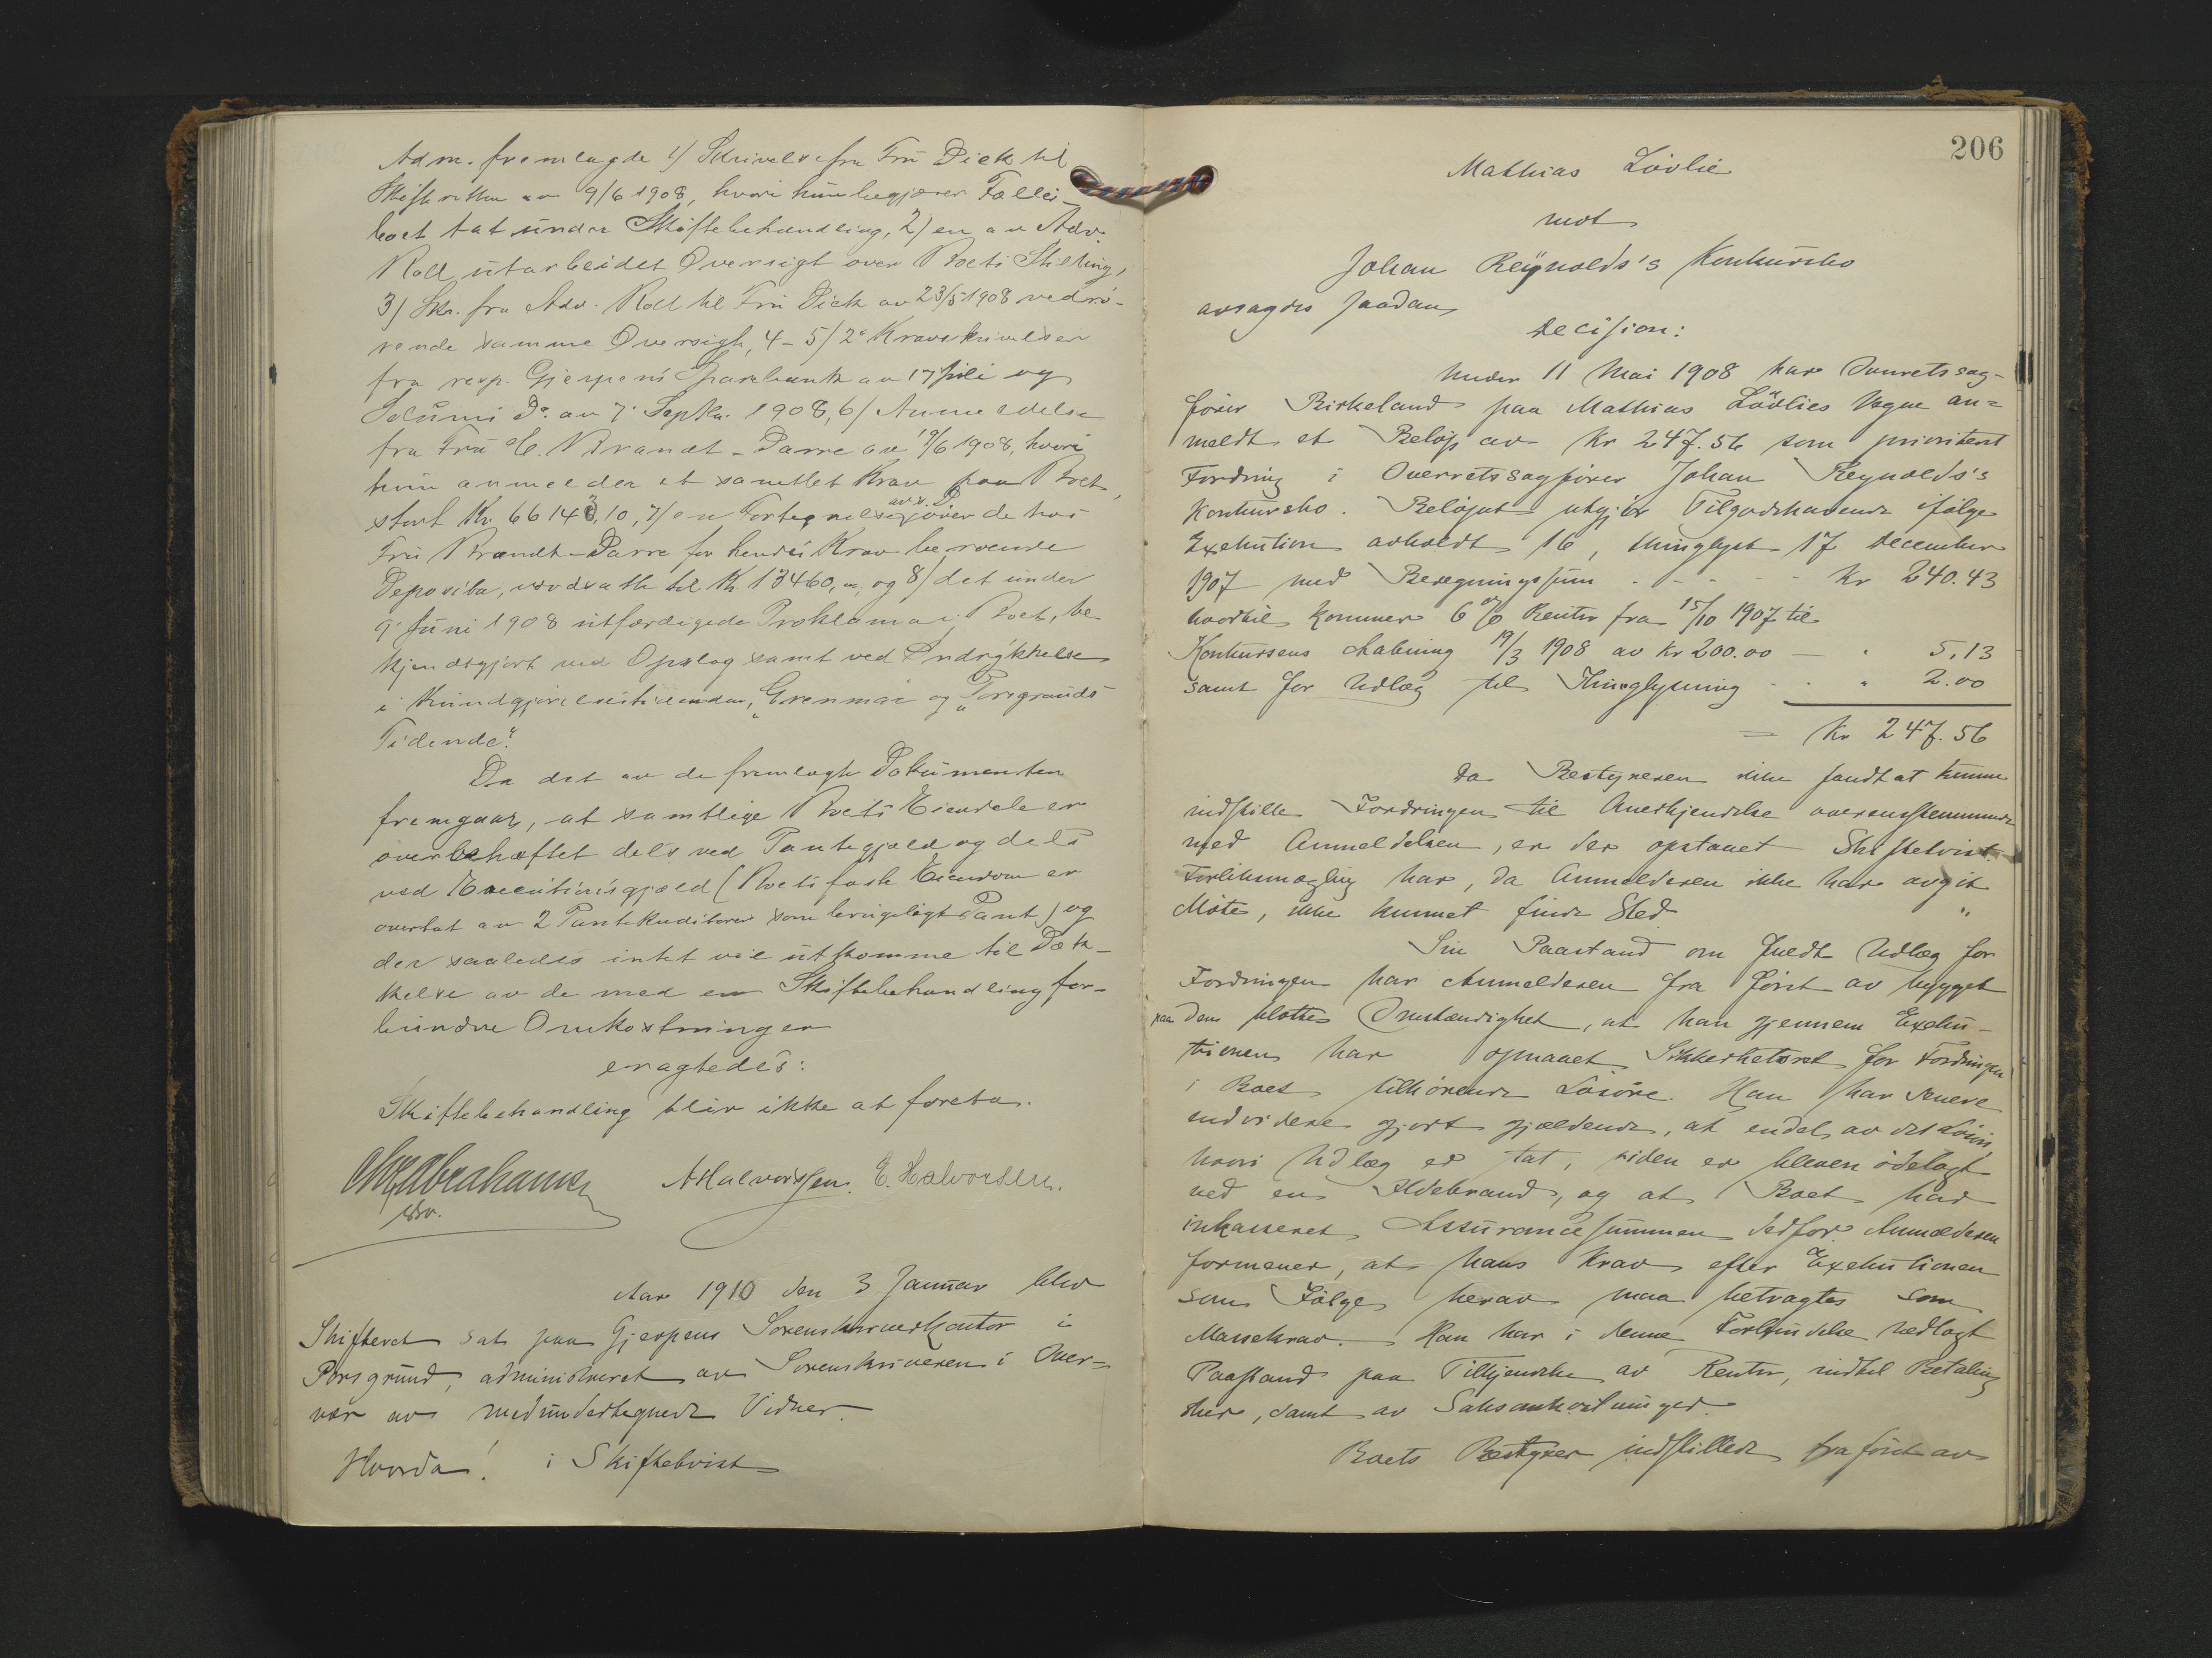 Adm. fremlagde 1) Skrivelse fra Fru Dick til
Skifteretten av 9/6 1908, hvori hun begjærer Fællei-
boet tat under Skiftebehandling, 2) en av Adv.
Roll utarbeidet Oversigt over Boets Stilling,
3) Skr. fra Adv. Roll til Fru Dick av 23/5 1908 vedrø-
rende samme Oversigt, 4-5) 2 Kravskrivelser
fra resp. Gjerpens Sparebank av 17 Juli og
Solums Do. av 7. Septbr. 1908, 6) Anmeldelse
fra Fru C. Brandt-Darre av 19/6 1908, hvori
hun anmelder et samlet Krav paa Boet,
stort Kr. 66143,10, 7) en Fortegnelse over de hos
Fru Brandt-Darre for hendes Krav beroende
Deposita, værdsatte til Kr. 13460, og 8) det under
9 Juni 1908 utfærdigede Proklama i Boet, be-
kjendtgjort ved Opslag samt ved Indrykkelse
i Kundgjørelsestidenden, "Grenmar" og "Porsgrunds
Tidende".
Da det av de fremlagte Dokumenter
fremgaar, at samtlige Boets Eiendele er
overbehæftet dels ved Pantegjæld og dels
ved Executionsgjæld (Boets faste Eiendom er
overtat av 2 Pantekreditorer som brukeligt Pant) og
der saaledes intet vil utkomme til Dæk-
kelse av de med en Skiftebehandling for-
bundne Omkostninger
eragtedes:
Skiftebehandling blir ikke at foreta.
Chr. Abrahamsen
A Halvorsen. E. Halvorsen.
Aar 1910 den 3 Januar blev
Skifteret sat paa Gjerpens Sorenskriverkontor i
Porsgrund, administreret av Sorenskriveren i Over-
vær av medundertegnede Vidner.
Hvorda! i Skiftetvist
206
Mathias Løvlie
mot
Johan Reynolds's Konkursbo
avsagdes saadan
Decision:
Under 11 Mai 1908 har Overretssag-
fører Birkeland paa Mathias Løvlies Vegne an-
meldt et Beløp av Kr 247.56 som prioritert
Fordring i Overretssagfører Johan Reynolds's
Konkursbo. Beløpet utgjør Tilgodehavende ifølge
Exekution avholdt 16, thinglyst 17 December
1907 med Beregningssum - - - - Kr 240.43
hvortil kommer 6 % Renter fra 15/10 1907 til
Konkursens Aabning 19/3 1908 av Kr 200.00 — " 5.13
samt for Utlæg til Thinglysning - - " 2.00
= Kr 247.56
Da Bestyreren ikke fandt at kunne
indstille Fordringen til Anerkjendelse overensstemmende
med Anmeldelsen, er der opstaaet Skiftetvist.
Forliksmægling har, da Anmelderen ikke har avgit
Møte, ikke kunnet finde Sted.
Sin Paastand om fuldt Utlæg for
Fordringen har Anmelderen fra først av bygget
paa den blotte Omstændighet, at han gjennem Exeku-
tionen har opnaaet Sikkerhetsret for Fordringen
i Boet tilhørende Løsøre. Han har senere
endvidere gjort gjældende, at endel av det Løsøre,
hvori Utlæg er tat, siden er bleven ødelagt
ved en Ildebrand, og at Boet har
inkasseret Assurancesummen derfor. Anmelderen
formener, at hans Krav efter Exekutionen
som Følge herav maa betragtes som
Massekrav. Han har i denne Forbindelse nedlagt
Paastand paa Tilkjendelse av Renter, indtil Betaling
sker, samt av Saksomkostninger.
Boets Bestyrer indstillede fra først av